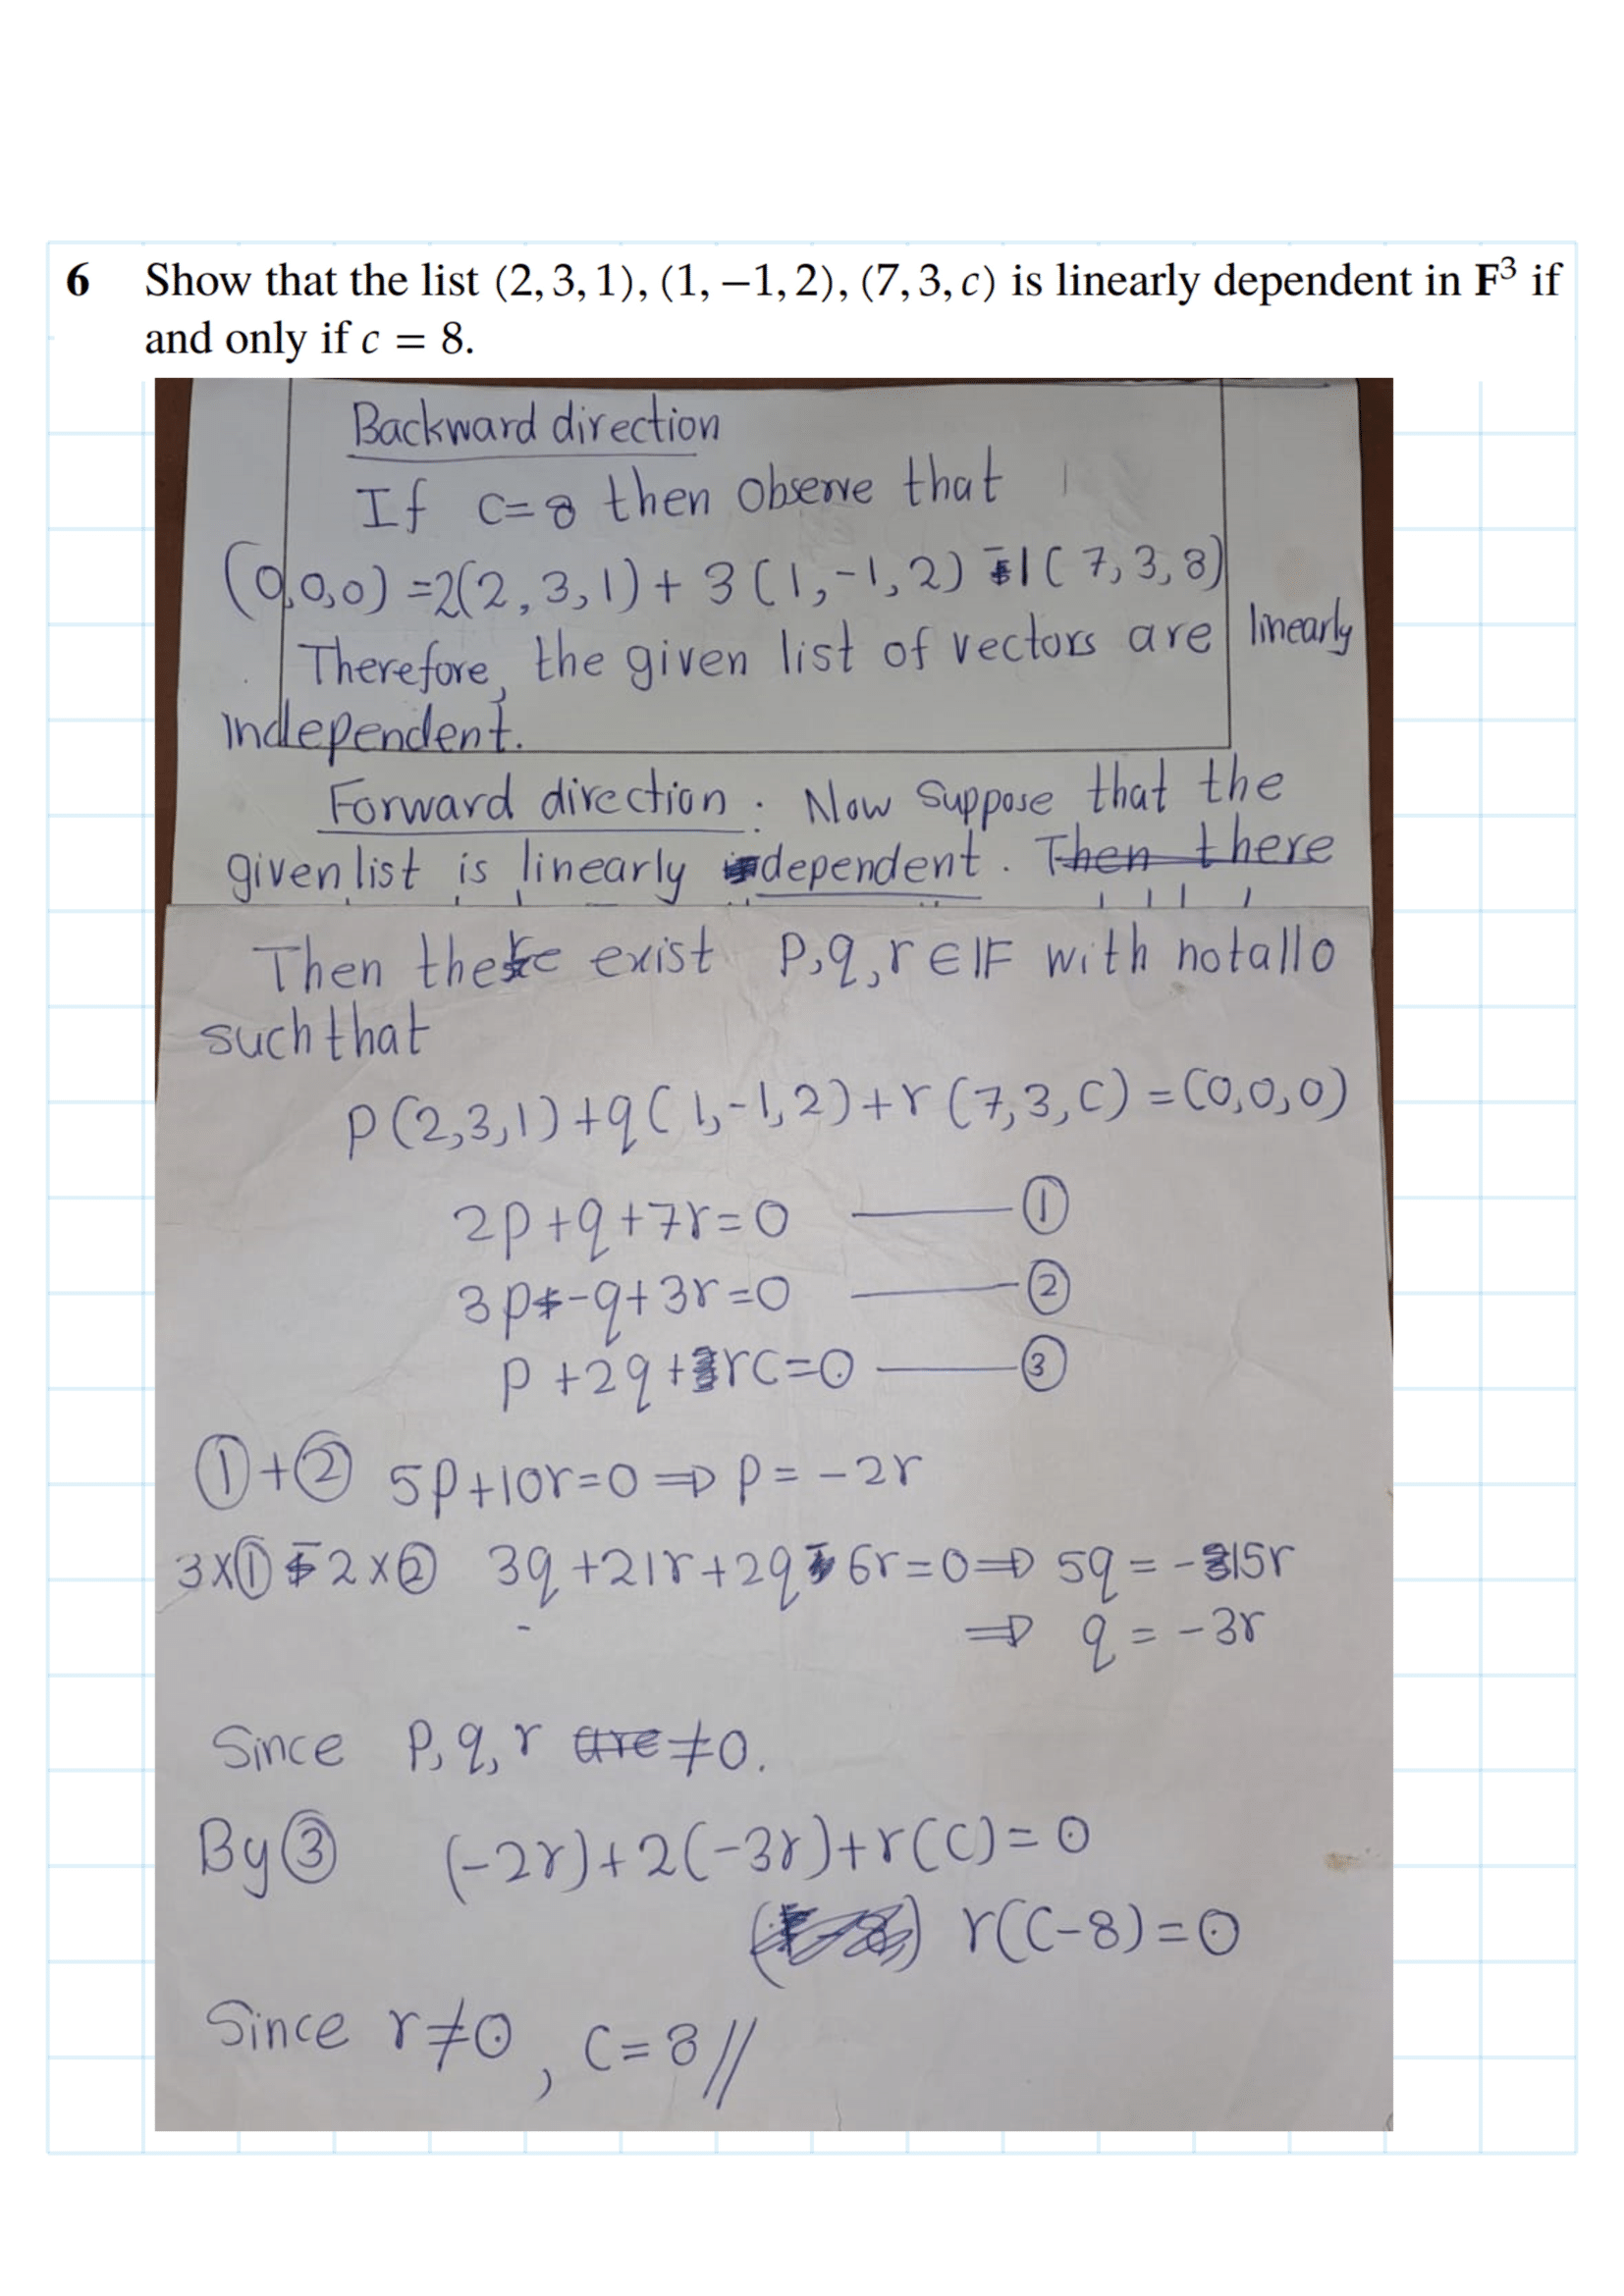 6 Show that the list (2, 3, 1), (1, −1, 2), (7, 3, c) is linearly dependent in F³ if
and only if c = 8.
Backward direction
If c=8 then observe that
(0,0,0) =2(2,3,1)+ 3(1,-1,2) -1(7,3,8)
Therefore, the given list of vectors are linearly
independent.
Forward direction : Now suppose that the
given list is linearly dependent. Then there
Then there exist p,q,r ∈ F with not all 0
such that
p(2,3,1)+q(1,-1,2)+r(7,3,C) =(0,0,0)
2p+q+7r=0 ——— ①
3p-q+3r=0 ——— ②
p+2q+rc=0 ——— ③
①+② 5p+10r=0 ⇒ p= -2r
3×①-2×② 3q+21r+2q-6r=0 ⇒ 5q = -15r
⇒ q = -3r
Since p,q,r are ≠0.
By ③ (-2r)+2(-3r)+r(c)=0
r(c-8)=0
Since r≠0, c=8//